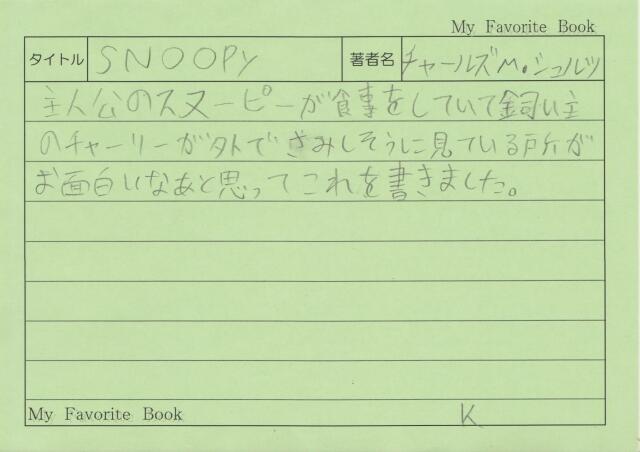 My Favorite Book
タイトル SNOOPY 著者名 チャールズM.シュルツ
主人公のスヌーピーが食事をしていて飼い主
のチャーリーが外でさみしそうに見ている所が
お面白いなあと思ってこれを書きました。
My Favorite Book K